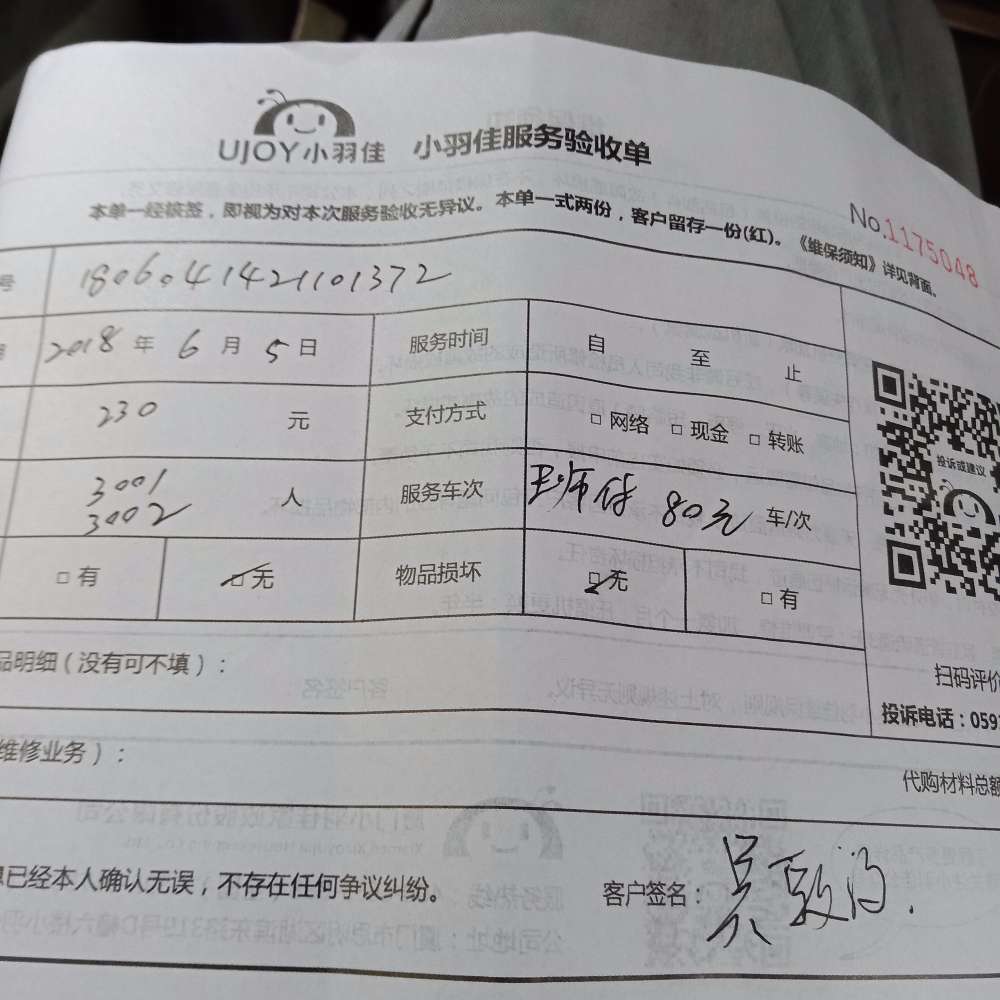 UJOY小羽佳 小羽佳服务验收单
本单一经核签，即视为对本次服务验收无异议。本单一式两份，客户留存一份(红)。《维保须知》详见背面。
No.1175048
号 180604142101372
2018 年 6 月 5 日 服务时间 自 至 止
230 元 支付方式 □ 网络 □ 现金 □ 转账
3001 人 服务车次 80元 车/次
3002
□ 有 □ 无 物品损坏 □ 无 □ 有
投诉或建议
品明细（没有可不填）：
扫码评价
投诉电话：059
维修业务）：
代购材料总额
已经本人确认无误，不存在任何争议纠纷。 客户签名：